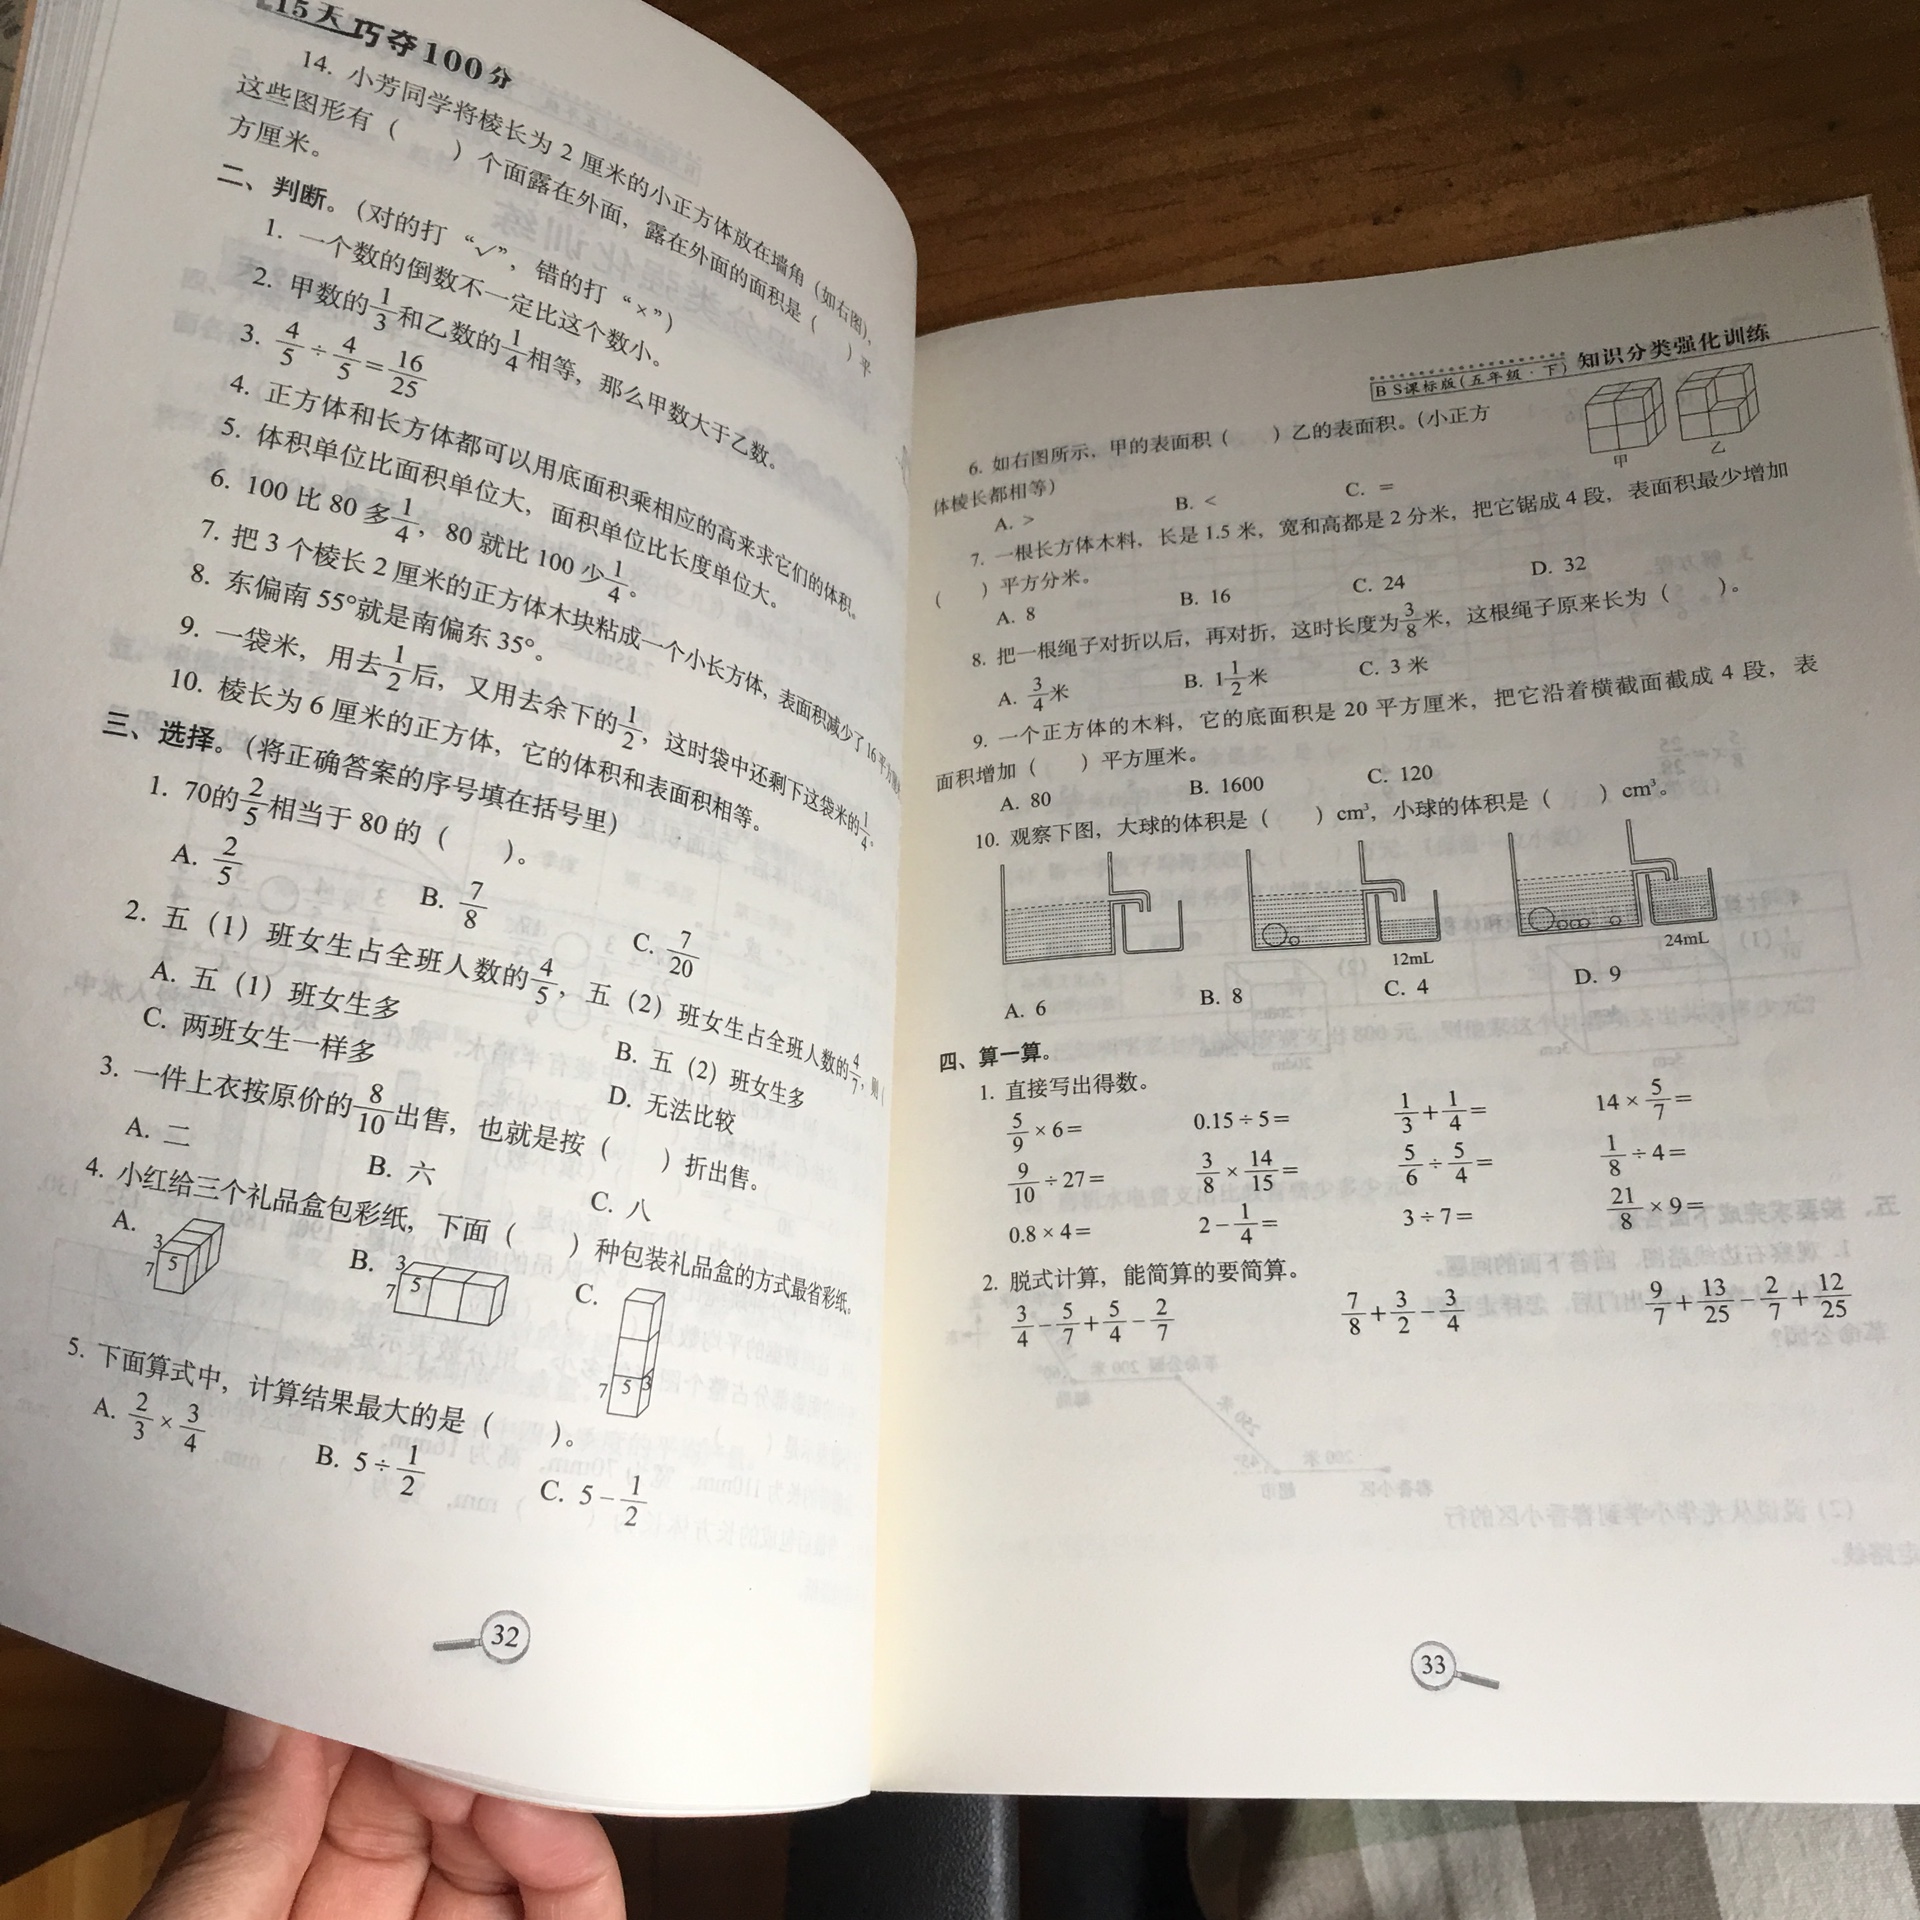 15天巧夺100分
14. 小芳同学将棱长为2厘米的小正方体放在墙角（如右图），
这些图形有（　　）个面露在外面，露在外面的面积是（　　）平
方厘米。
二、判断。（对的打“√”，错的打“×”）
1. 一个数的倒数不一定比这个数小。
2. 甲数的1/3和乙数的1/4相等，那么甲数大于乙数。
3. 4/5÷4/5=16/25
4. 正方体和长方体都可以用底面积乘相应的高来求它们的体积。
5. 体积单位比面积单位大，面积单位比长度单位大。
6. 100比80多1/4，80就比100少1/4。
7. 把3个棱长2厘米的正方体木块粘成一个小长方体，表面积减少了16平方厘米
8. 东偏南55°就是南偏东35°。
9. 一袋米，用去1/2后，又用去余下的1/2，这时袋中还剩下这袋米的1/4。
10. 棱长为6厘米的正方体，它的体积和表面积相等。
三、选择。（将正确答案的序号填在括号里）
1. 70的2/5相当于80的（　　）。
A. 2/5　B. 7/8　C. 7/20
2. 五（1）班女生占全班人数的4/5，五（2）班女生占全班人数的4/7，则（
A. 五（1）班女生多　B. 五（2）班女生多
C. 两班女生一样多　D. 无法比较
3. 一件上衣按原价的8/10出售，也就是按（　　）折出售。
A. 二　B. 六　C. 八
4. 小红给三个礼品盒包彩纸，下面（　　）种包装礼品盒的方式最省彩纸。
A. 3 5 7　B. 3 5 7　C. 7 5 3
5. 下面算式中，计算结果最大的是（　　）。
A. 2/3×3/4　B. 5÷1/2　C. 5−1/2
32
BS课标版（五年级·下）知识分类强化训练
6. 如右图所示，甲的表面积（　　）乙的表面积。（小正方
体棱长都相等）
甲　乙
A. >　B. <　C. =
7. 一根长方体木料，长是1.5米，宽和高都是2分米，把它锯成4段，表面积最少增加
（　　）平方分米。
A. 8　B. 16　C. 24　D. 32
8. 把一根绳子对折以后，再对折，这时长度为3/8米，这根绳子原来长为（　　）。
A. 3/4米　B. 1 1/2米　C. 3米
9. 一个正方体的木料，它的底面积是20平方厘米，把它沿着横截面截成4段，表
面积增加（　　）平方厘米。
A. 80　B. 1600　C. 120
10. 观察下图，大球的体积是（　　）cm³，小球的体积是（　　）cm³。
12mL　24mL
A. 6　B. 8　C. 4　D. 9
四、算一算。
1. 直接写出得数。
5/9×6=　0.15÷5=　1/3+1/4=　14×5/7=
9/10÷27=　3/8×14/15=　5/6÷5/4=　1/8÷4=
0.8×4=　2−1/4=　3÷7=　21/8×9=
2. 脱式计算，能简算的要简算。
3/4−5/7+5/4−2/7　7/8+3/2−3/4　9/7+13/25−2/7+12/25
33